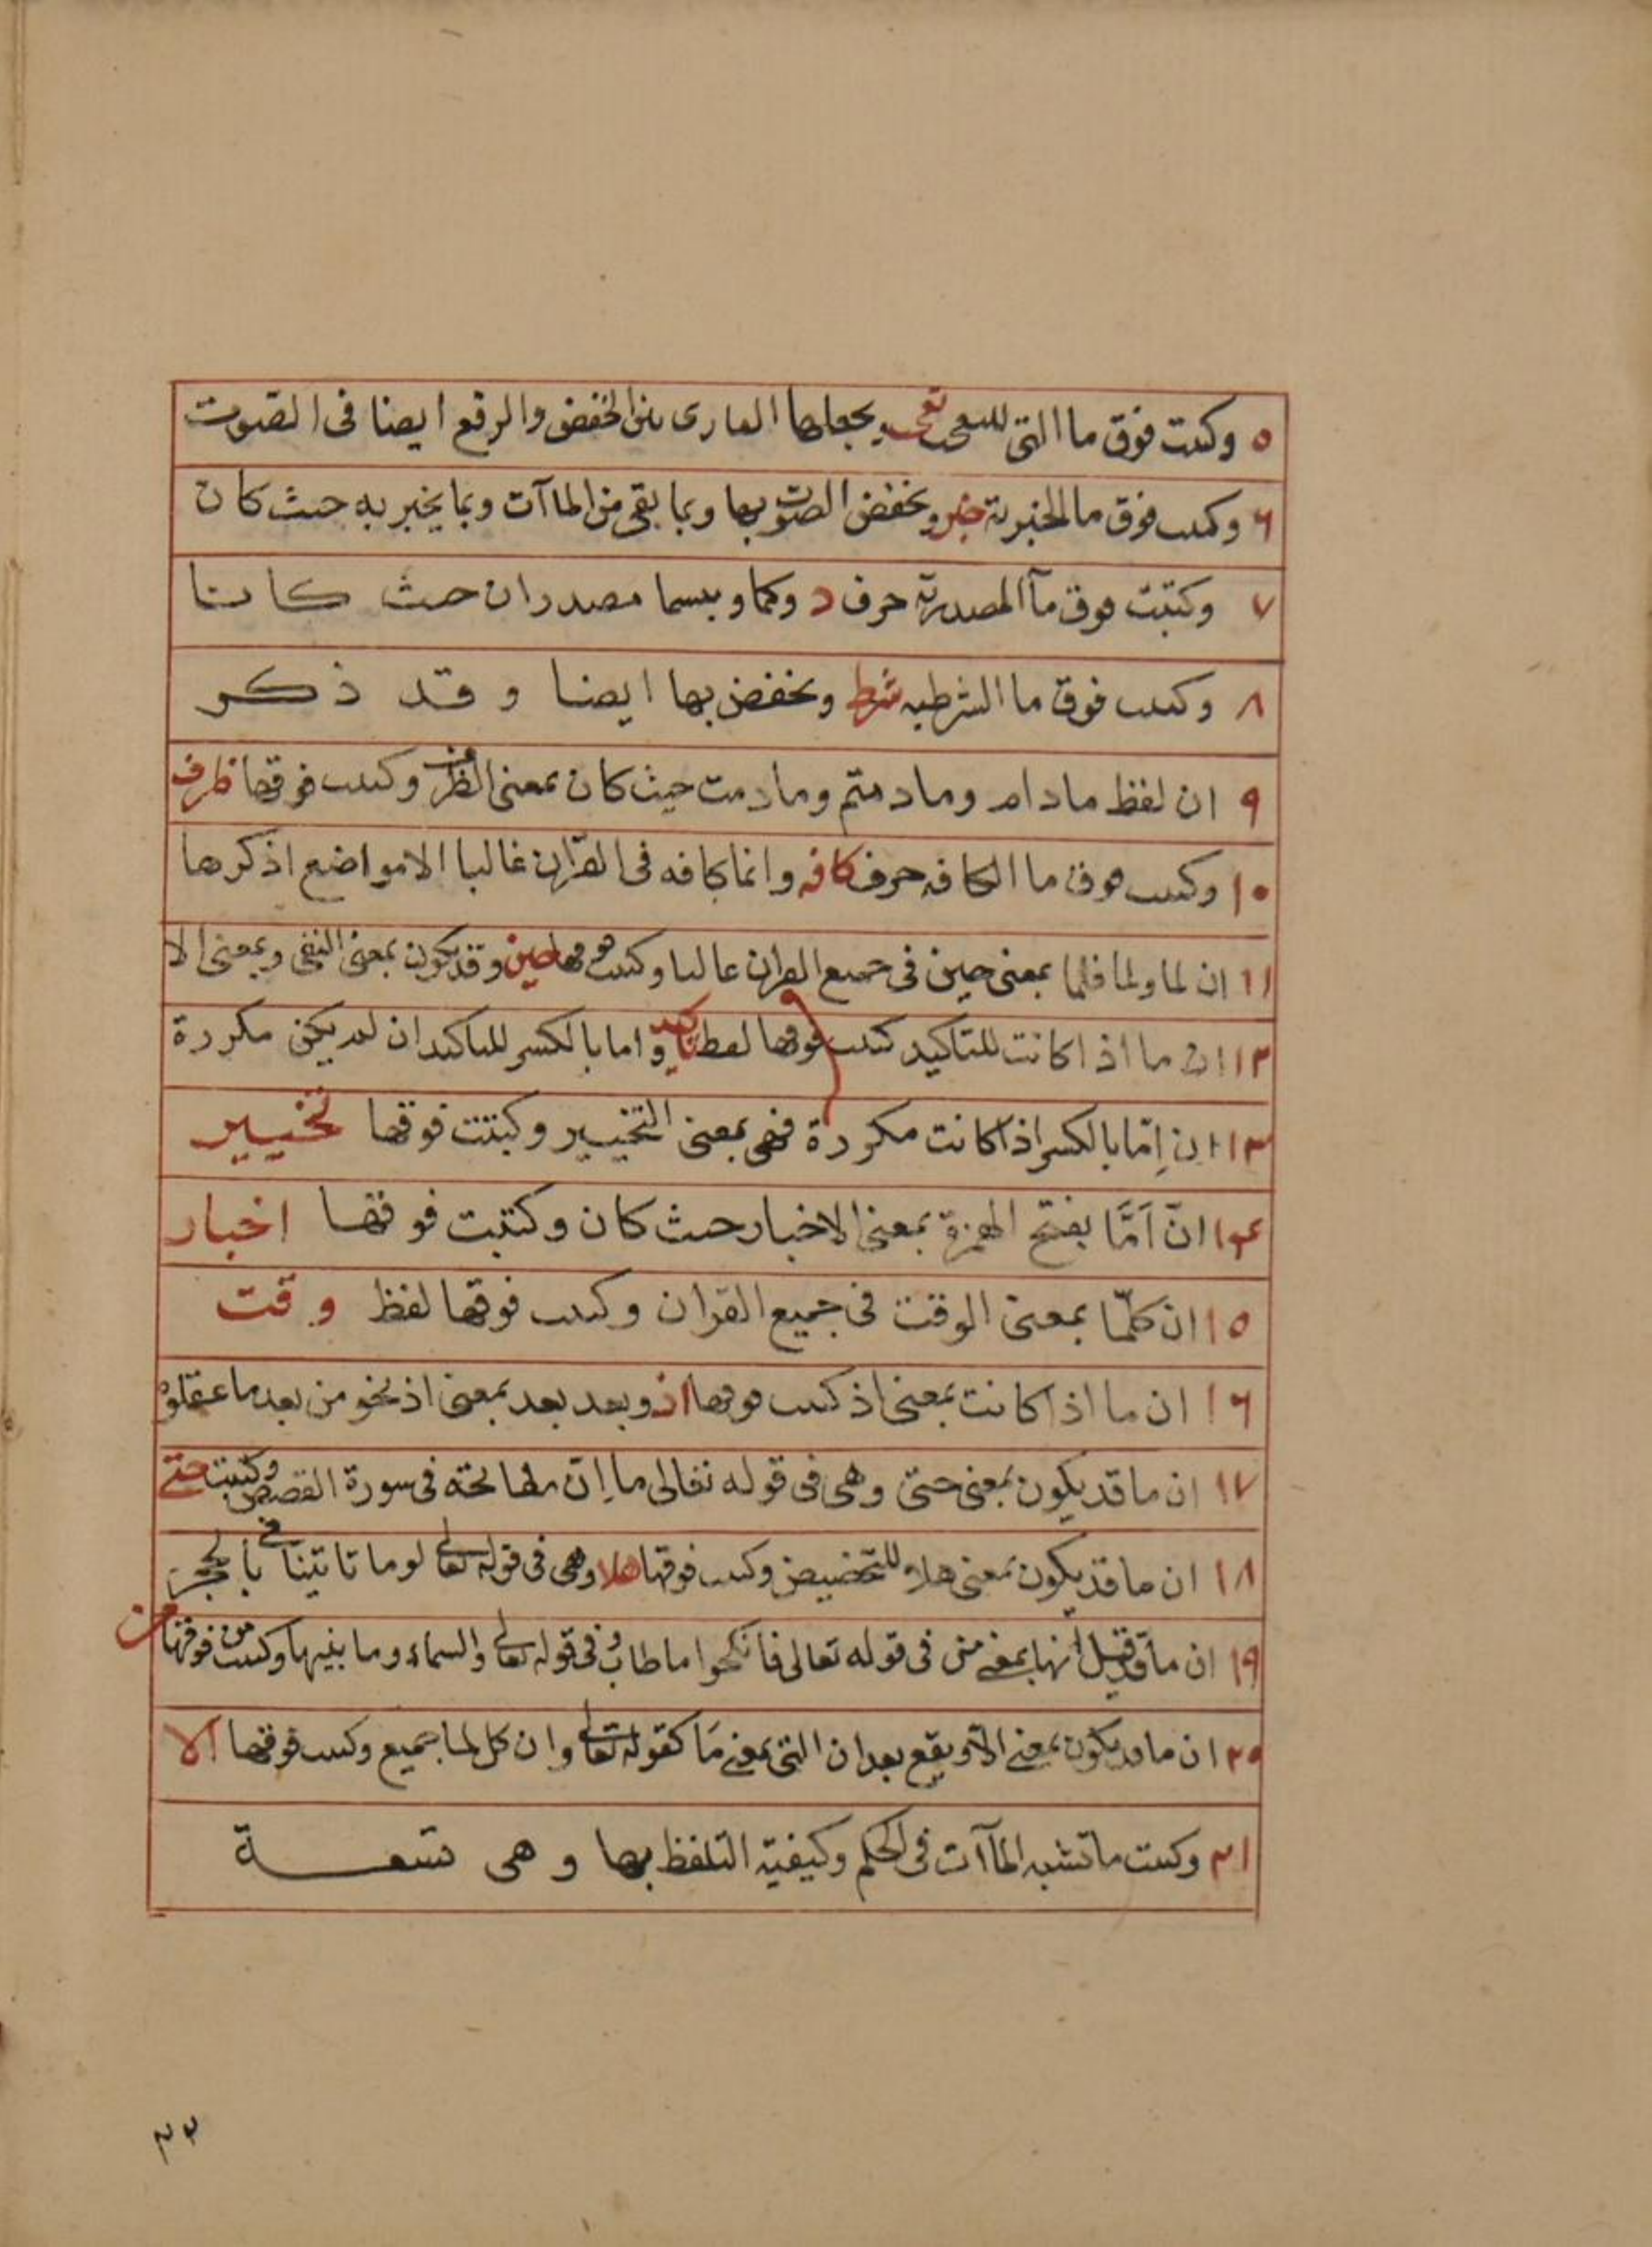 ٥ وكتبت فوق ما التى للتعجب تعجب ويجعلها القارى بين الخفض والرفع ايضا فى الصوت
٦ وكتبت فوق ما الخبرية خبر ويخفض الصوت بها وبما بقى من الماآت وبما يخبر به حيث كان
٧ وكتبت فوق مآ المصدريّة حرف د وكما وبيسما مصدران حيث كانتا
٨ وكتبت فوق ما الشرطيه شرط ويخفض بها ايضا وقد ذكر
٩ ان لفظ مادام ومادمتم ومادمت حيث كان بمعنى الظرف وكتبت فوقها ظرف
١٠ وكتبت فوق ما الكافه حرف كافه وانما كافه فى القرآن غالبا الا مواضع اذكرها
١١ ان لما ولما فلما بمعنى حين فى جميع القران غالبا وكتبت فوقها حين وقد يكون بمعنى النفى وبمعنى الا
١٢ ان ما اذا كانت للتاكيد كتبت فوقها لفظ تاكيد واما بالكسر للتاكيد ان لم يكن مكررة
١٣ ان اِمّا بالكسر اذا كانت مكررة فهى بمعنى التخيير وكتبت فوقها تخيير
١٤ انّ اَمَّا بفتح الهمزة بمعنى الاخبار حيث كان وكتبت فوقها اخبار
١٥ ان كلّما بمعنى الوقت فى جميع القران وكتبت فوقها لفظ وقت
١٦ ان ما اذا كانت بمعنى اذ كتبت فوقها اذ وبعد بعد بمعنى اذ نحو من بعد ما عقلوه
١٧ ان ما قد يكون بمعنى حتى وهى فى قوله تعالى ما اِنّ مفاتحه فى سورة القصص وكتبت حتى
١٨ ان ما قد يكون بمعنى هلا للتحضيض وكتبت فوقها هلا وهى فى قوله تعالى لوما تاتينا فى بالحجر
١٩ ان ما قد قيل انها بمعنى من فى قوله تعالى فانكحوا ما طاب وفى قوله تعالى والسماء وما بنيها وكتبت من فوقها من
٢٠ ان ما قد يكون بمعنى الا ويقع بعد ان التى بمعنى مَا كقوله تعالى وان كل لما جميع وكتبت فوقها الا
٢١ وكتبت ما تشبه الماآت فى الحكم وكيفية التلفظ بها وهى تسعة